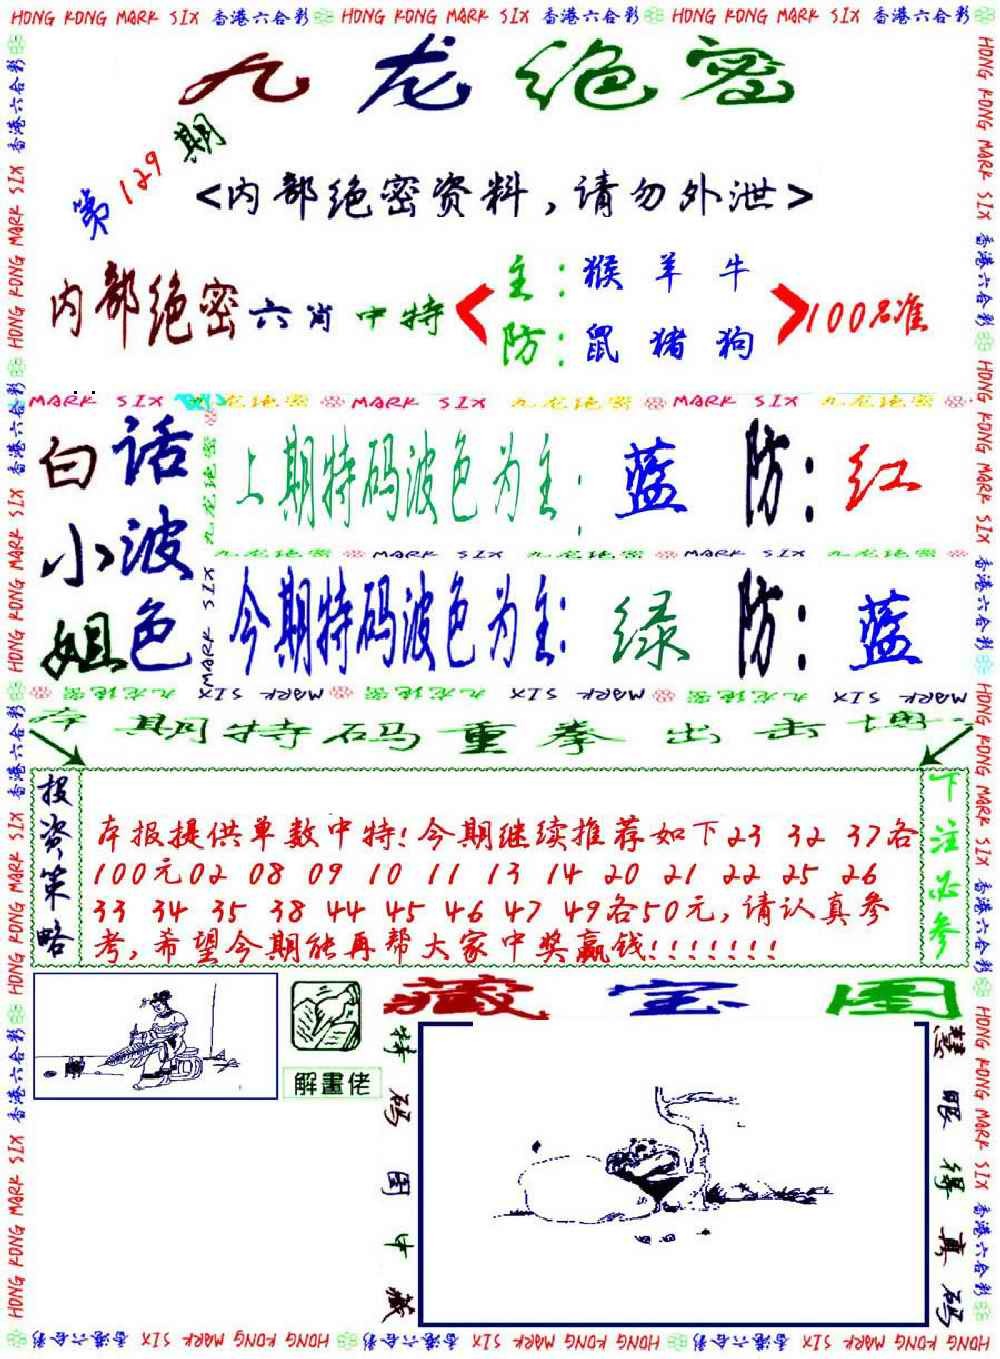 HONG KONG MARK SIX 香港六合彩 HONG KONG MARK SIX 香港六合彩 HONG KONG MARK SIX 香港六合彩
九龙绝密
第129期
<内部绝密资料,请勿外泄>
内部绝密六肖中特
主:猴 羊 牛
防:鼠 猪 狗
100%准
MARK SIX 九龙绝密 MARK SIX 九龙绝密 MARK SIX 九龙绝密
白小姐
话波色
上期特码波色为主:蓝 防:红
九龙绝密 MARK SIX 九龙绝密 MARK SIX 九龙绝密
今期特码波色为主:绿 防:蓝
九龙绝密 MARK SIX 九龙绝密 MARK SIX 九龙绝密 MARK SIX
本期特码重拳出击
投资策略
本报提供单数中特!今期继续推荐如下23 32 37各
100元02 08 09 10 11 13 14 20 21 22 25 26
33 34 35 38 44 45 46 47 49各50元,请认真参
考,希望今期能再帮大家中奖赢钱!!!!!!!
下注必参
解畫佬
藏宝图
特码图中藏
慧眼得真码
HONG KONG MARK SIX 香港六合彩 HONG KONG MARK SIX 香港六合彩 HONG KONG MARK SIX 香港六合彩